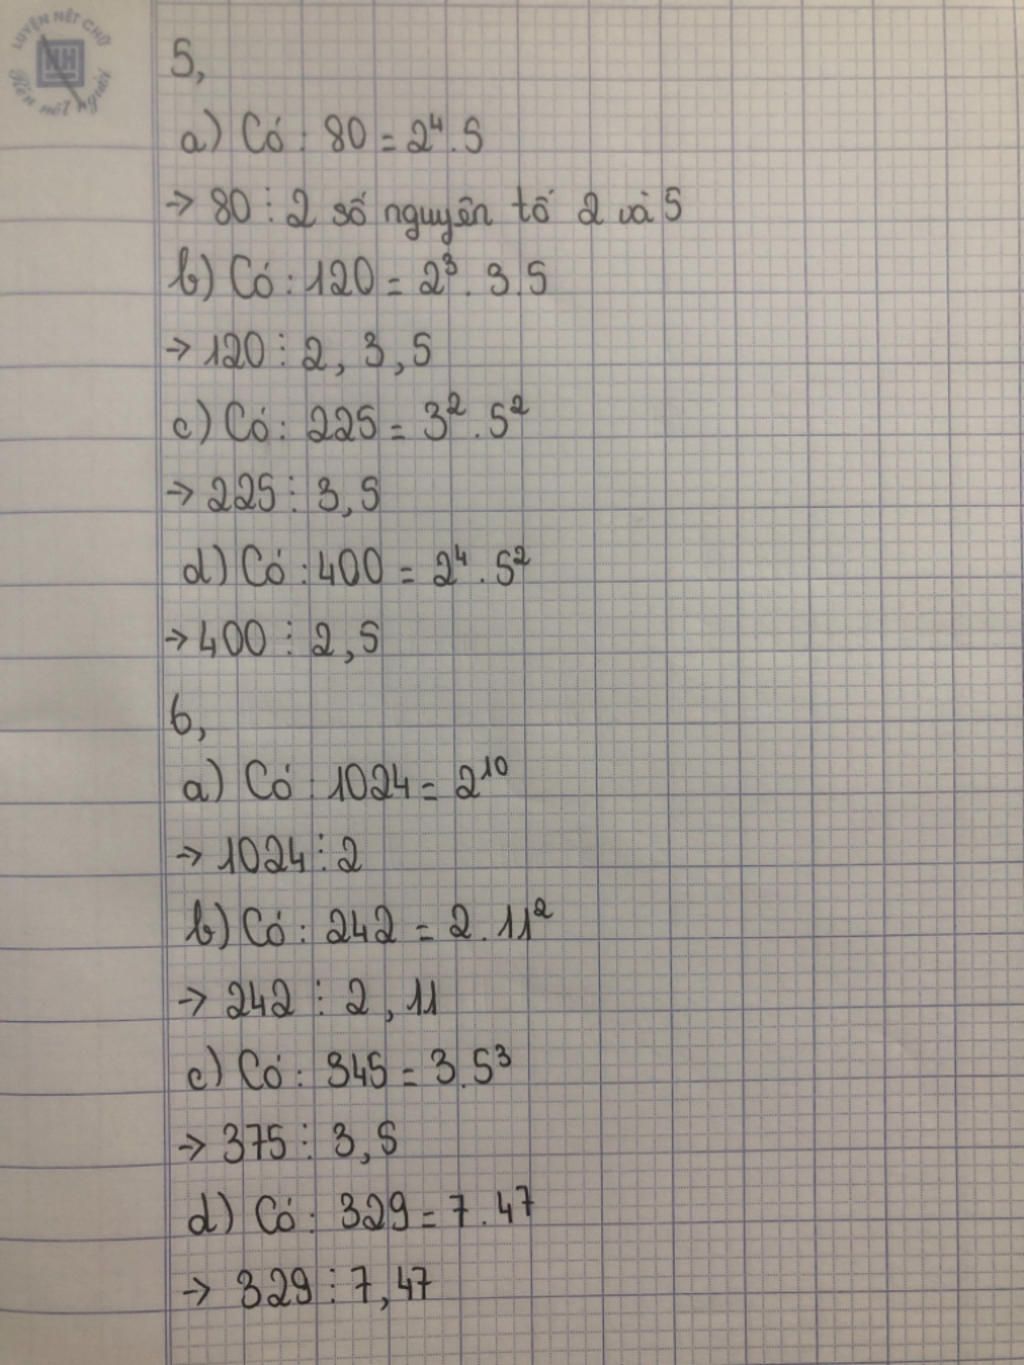 LUYỆN NÉT CHỮ
HH
Rèn nết người
5,
a) Có : 80 = 2⁴ . 5
→ 80 ⋮ 2 số nguyên tố 2 và 5
b) Có : 120 = 2³ . 3 . 5
→ 120 ⋮ 2, 3, 5
c) Có : 225 = 3² . 5²
→ 225 ⋮ 3, 5
d) Có : 400 = 2⁴ . 5²
→ 400 ⋮ 2, 5
6,
a) Có : 1024 = 2¹⁰
→ 1024 ⋮ 2
b) Có : 242 = 2 . 11²
→ 242 ⋮ 2, 11
c) Có : 345 = 3 . 5³
→ 375 ⋮ 3, 5
d) Có : 329 = 7 . 47
→ 329 ⋮ 7, 47